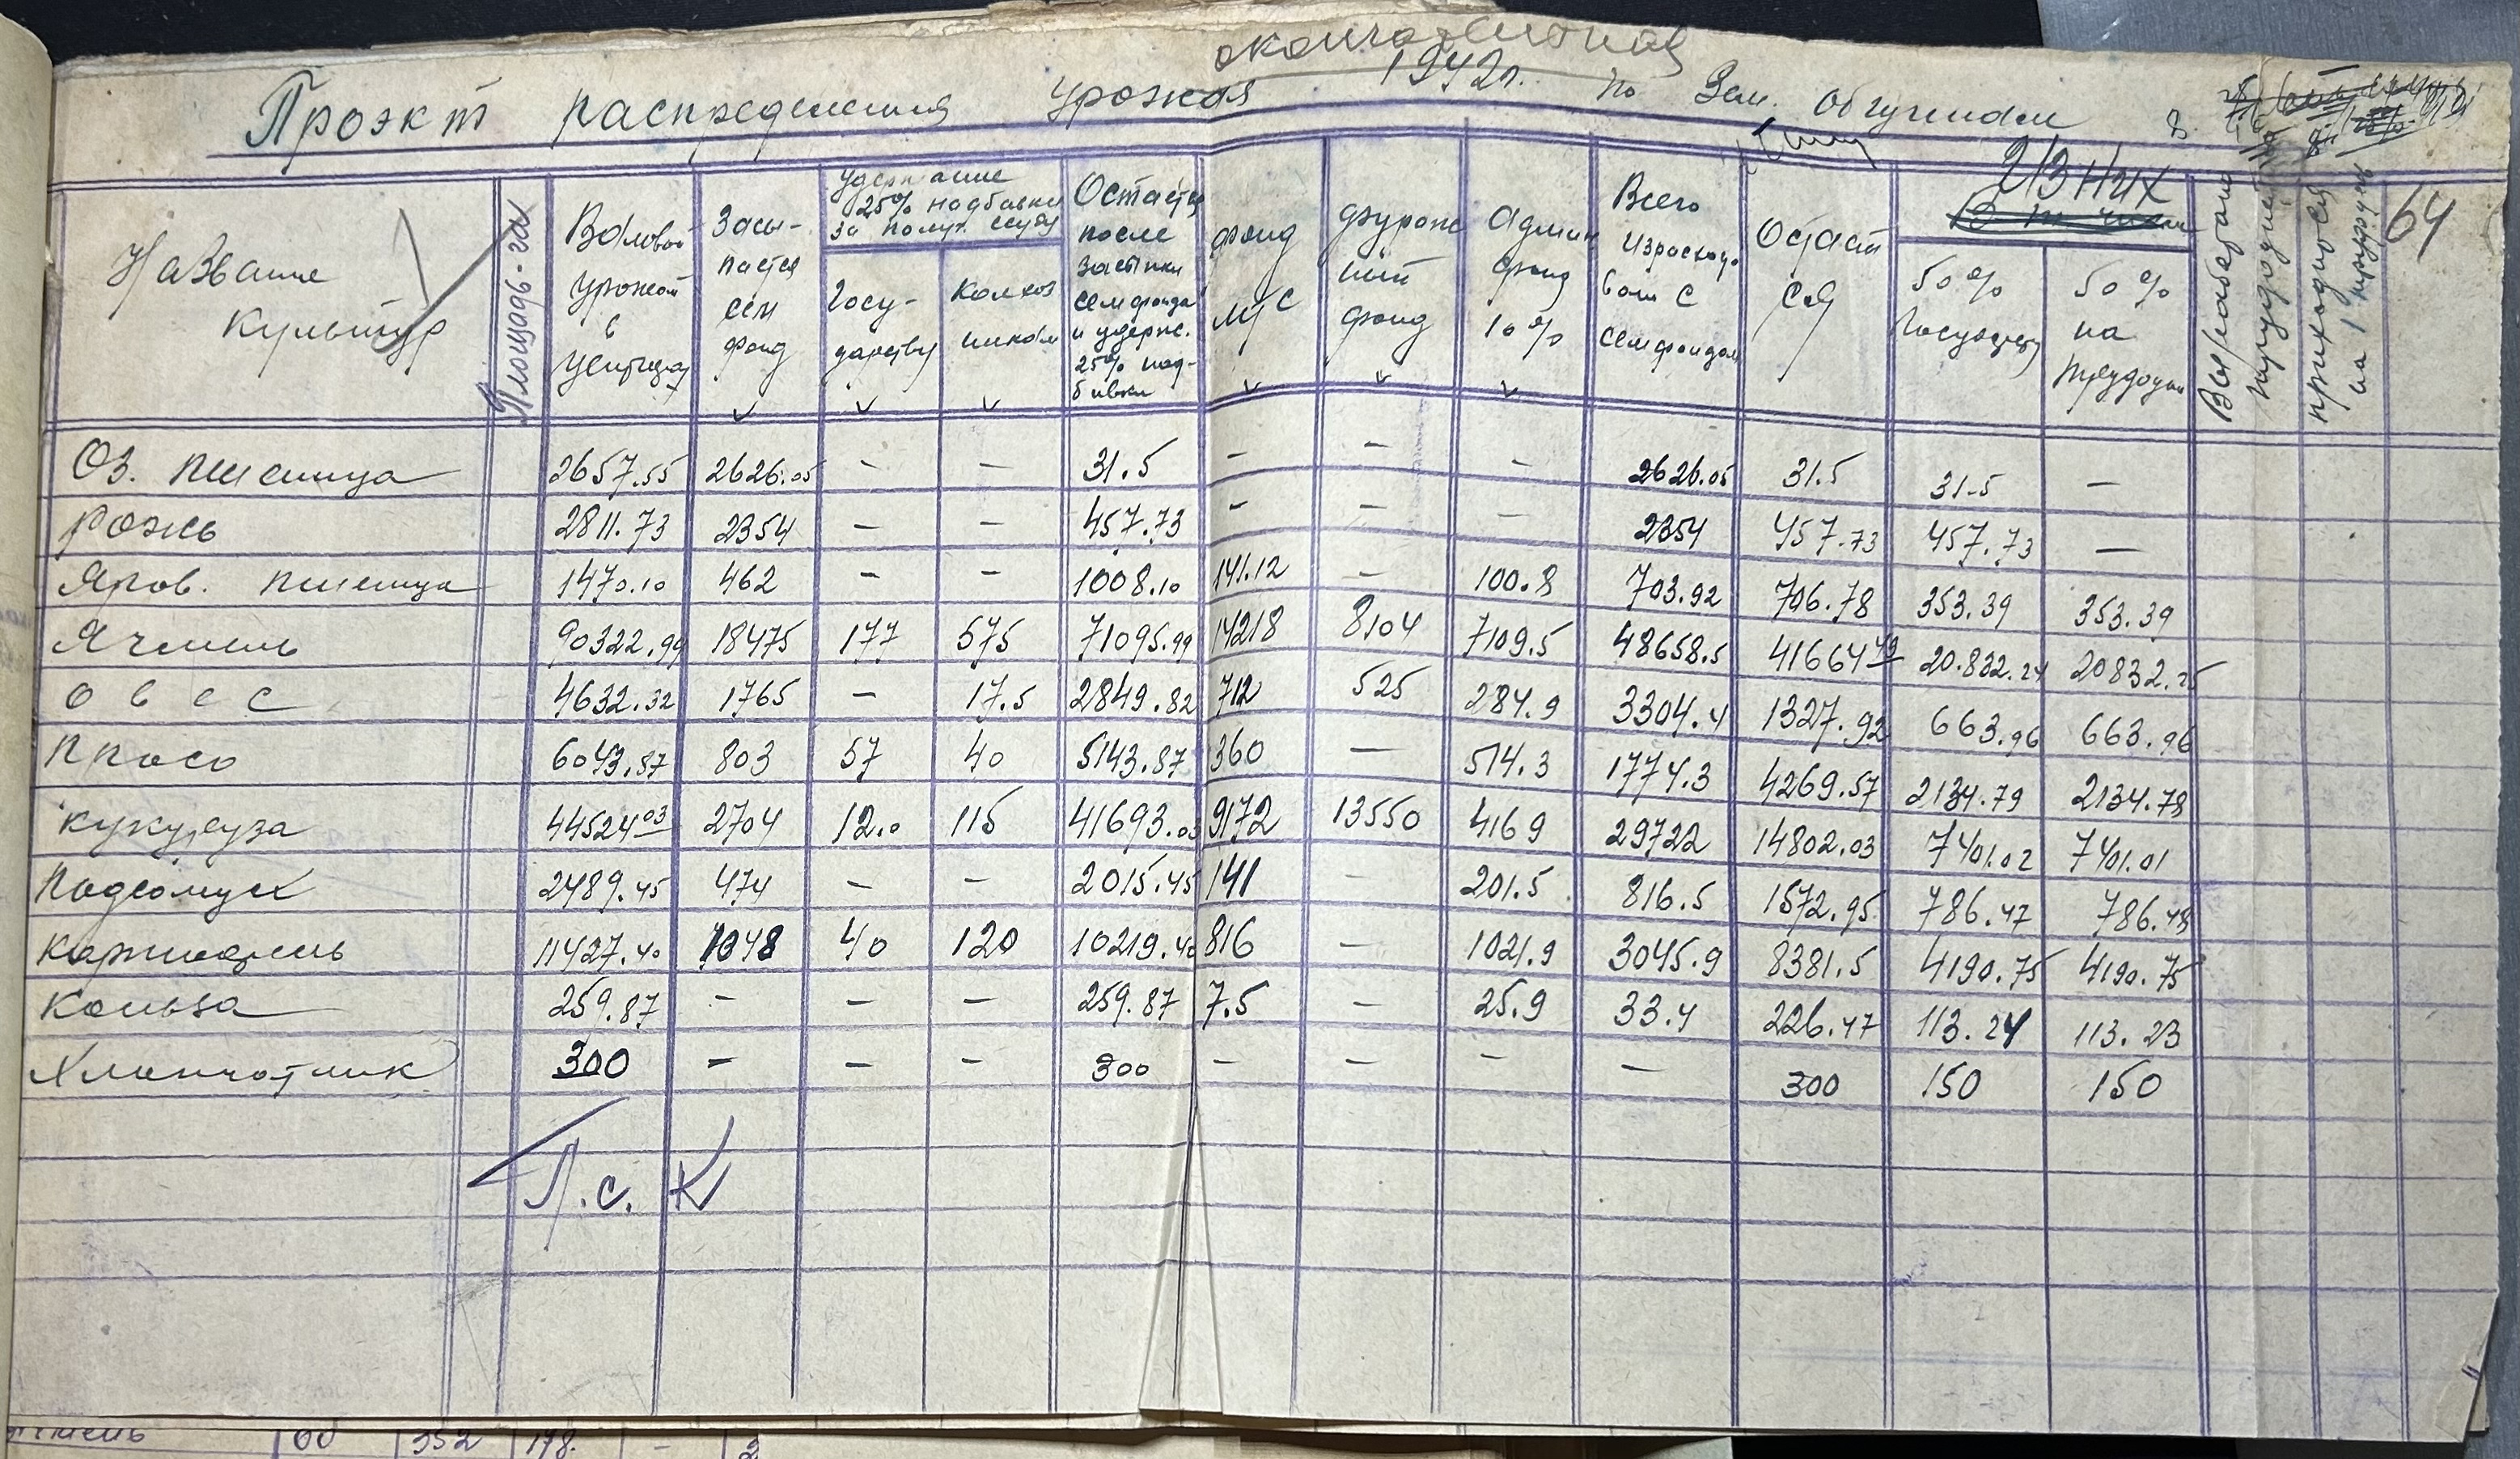 окончательная
Проэкт распределения урожая 1942г. по Зем. общинам
64
Название культур
Площадь - га
Валовой урожай в центнерах
Засыпается сем фонд
Удержание 25% надбавки за получ. ссуду
Государству
Колхозникам
Остается после засыпки семфонда и удерж. 25% надбавки
фонд МТС
фуражный фонд
Админ фонд 10%
Всего израсходовано с семфондом
Остается
Из них
50% Государству
50% на трудодни
Выработано трудодней
приходится на 1 трудодень
Оз. пшеница 2657.55 2626.05 - - 31.5 - - - 2626.05 31.5 31.5 -
Рожь 2811.73 2354 - - 457.73 - - - 2354 457.73 457.73 -
Яров. пшеница 1470.10 462 - - 1008.10 141.12 - 100.8 703.92 706.78 353.39 353.39
Ячмень 90322.99 18475 177 575 71095.99 14218 8104 7109.5 48658.5 41664 49 20.832.24 20832.25
Овес 4632.32 1765 - 17.5 2849.82 712 525 284.9 3304.4 1327.92 663.96 663.96
Просо 6043.87 803 57 40 5143.87 360 - 514.3 1774.3 4269.57 2134.79 2134.78
Кукуруза 44524 03 2704 12.0 115 41693.03 9172 13550 4169 29722 14802.03 7401.02 7401.01
Подсолнух 2489.45 474 - - 2015.45 141 - 201.5 816.5 1672.95 786.47 786.48
Картофель 11427.40 1048 40 120 10219.40 816 - 1021.9 3045.9 8381.5 4190.75 4190.75
Кольза 259.87 - - - 259.87 7.5 - 25.9 33.4 226.47 113.24 113.23
Хлопчатник 300 - - - 300 - - - - 300 150 150
Л.с. К